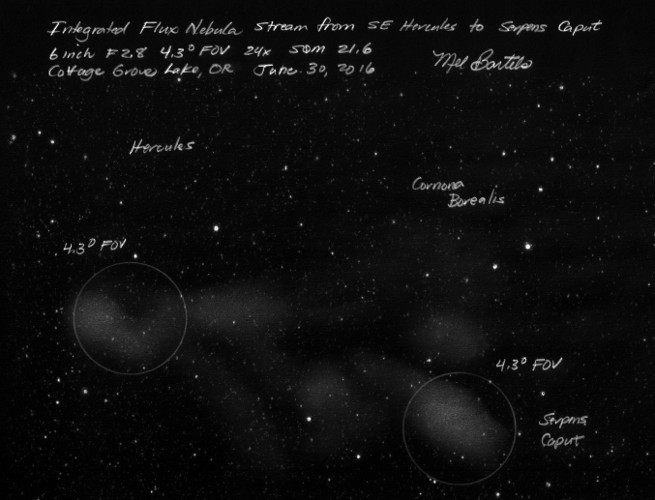 Integrated Flux Nebula Stream from SE Hercules to Serpens Caput
6 inch F2.8 4.3° FOV 24x SQM 21.6
Cottage Grove Lake, OR June 30, 2016
Mel Bartels
Hercules
Cornona
Borealis
4.3° FOV
4.3° FOV
Serpens
Caput